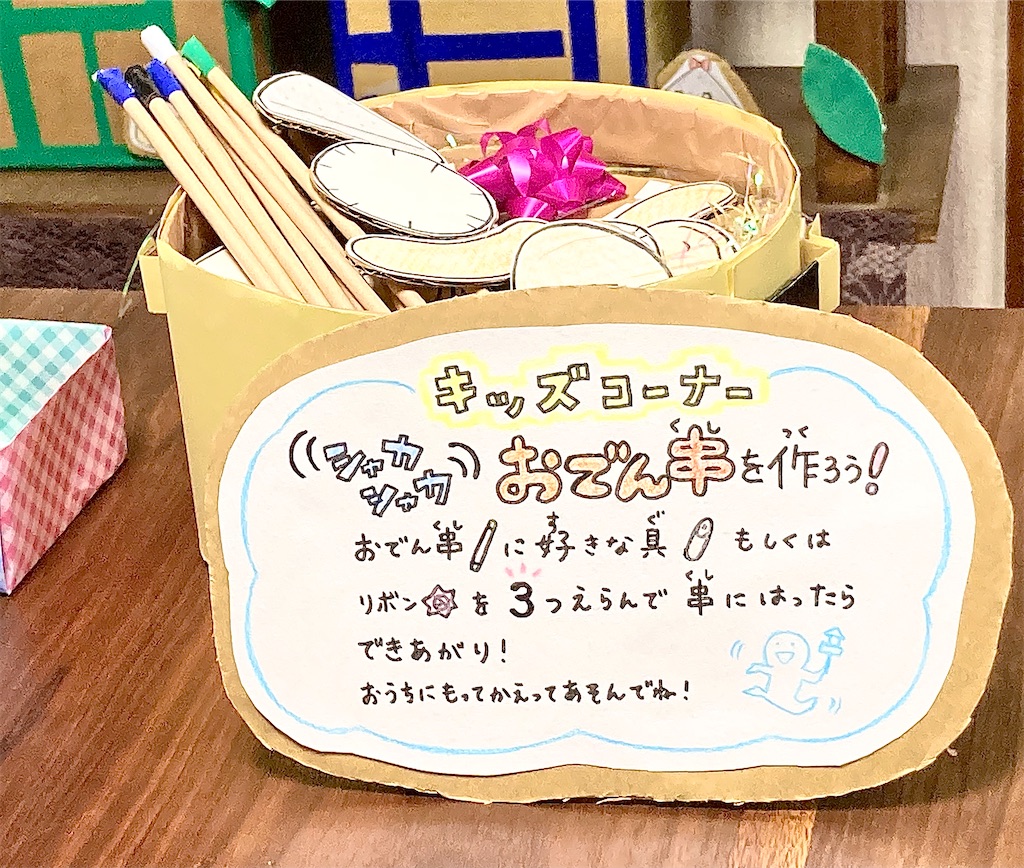 キッズコーナー
シャカシャカ おでん串を作ろう!
おでん串に好きな具もしくは
リボンを3つえらんで串にはったら
できあがり!
おうちにもってかえってあそんでね!